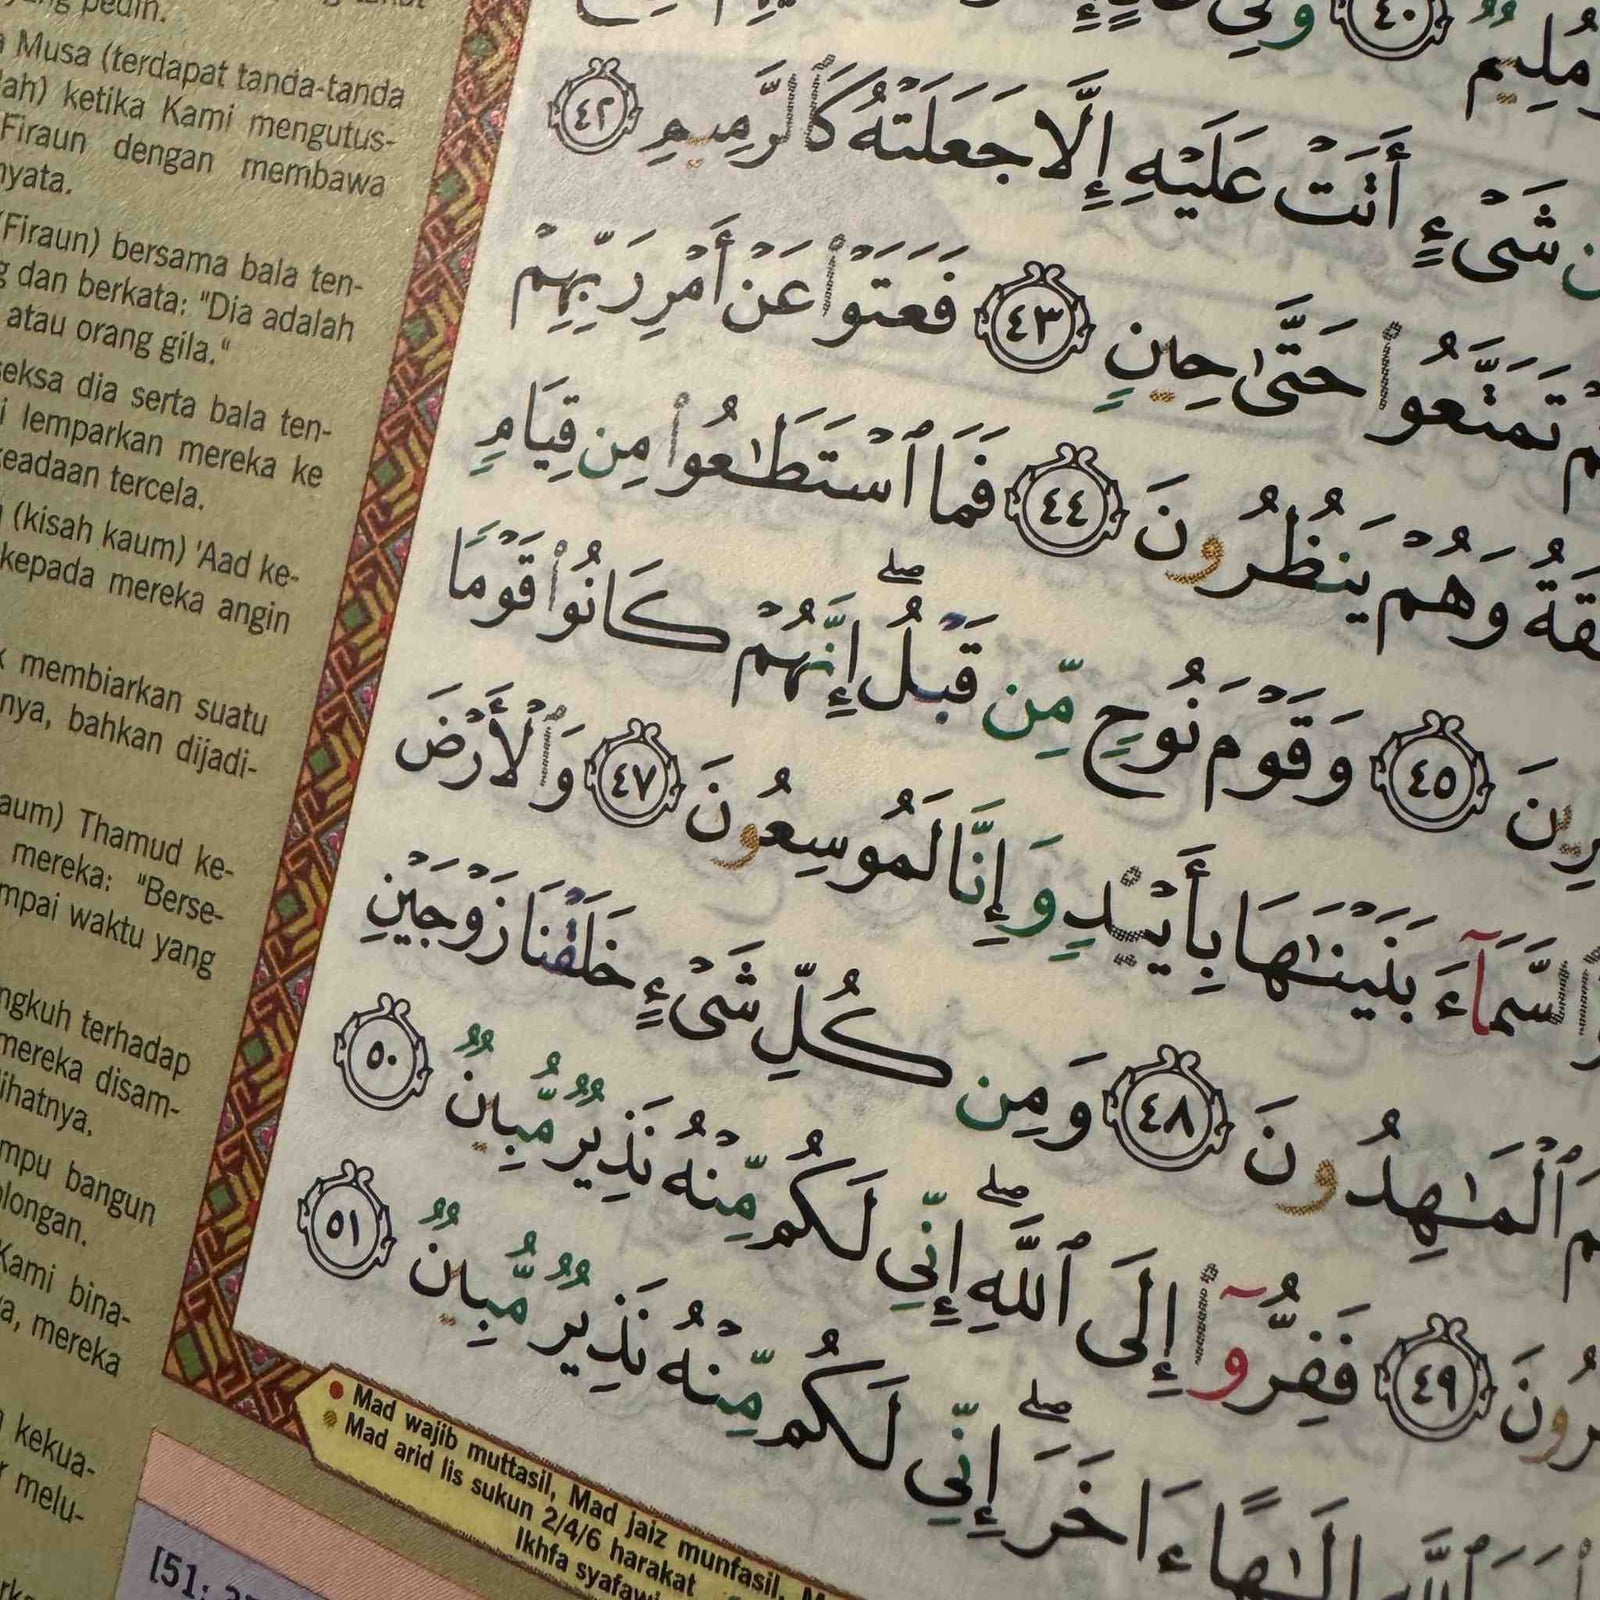 yang pedih.
Musa (terdapat tanda-tanda
lah) ketika Kami mengutus-
Firaun dengan membawa
nyata.
(Firaun) bersama bala ten-
g dan berkata: "Dia adalah
atau orang gila."
seksa dia serta bala ten-
i lemparkan mereka ke
keadaan tercela.
(kisah kaum) 'Aad ke-
kepada mereka angin
k membiarkan suatu
nya, bahkan dijadi-
aum) Thamud ke-
mereka: "Berse-
mpai waktu yang
ngkuh terhadap
mereka disam-
lihatnya.
mpu bangun
olongan.
Kami bina-
a, mereka
kekua-
r melu-
مُلِيمٌ ٤٠ وَفِي
شَىْءٍ أَتَتْ عَلَيْهِ إِلَّا جَعَلَتْهُ كَٱلرَّمِيمِ ٤٢
تَمَتَّعُوا۟ حَتَّىٰ حِينٍ ٤٣ فَعَتَوْا۟ عَنْ أَمْرِ رَبِّهِمْ
قَةُ وَهُمْ يَنظُرُونَ ٤٤ فَمَا ٱسْتَطَـٰعُوا۟ مِن قِيَامٍ
رِينَ ٤٥ وَقَوْمَ نُوحٍ مِّن قَبْلُ ۖ إِنَّهُمْ كَانُوا۟ قَوْمًا
وَٱلسَّمَآءَ بَنَيْنَـٰهَا بِأَيْي۟دٍ وَإِنَّا لَمُوسِعُونَ ٤٧ وَٱلْأَرْضَ
مَ ٱلْمَـٰهِدُونَ ٤٨ وَمِن كُلِّ شَىْءٍ خَلَقْنَا زَوْجَيْنِ
رُونَ ٤٩ فَفِرُّوٓا۟ إِلَى ٱللَّهِ ۖ إِنِّي لَكُم مِّنْهُ نَذِيرٌ مُّبِينٌ ٥٠
ٱللَّهِ إِلَـٰهًا ءَاخَرَ ۖ إِنِّي لَكُم مِّنْهُ نَذِيرٌ مُّبِينٌ ٥١
Mad wajib muttasil, Mad jaiz munfasil, M
Mad arid lis sukun 2/4/6 harakat
Ikhfa syafawi
[51: